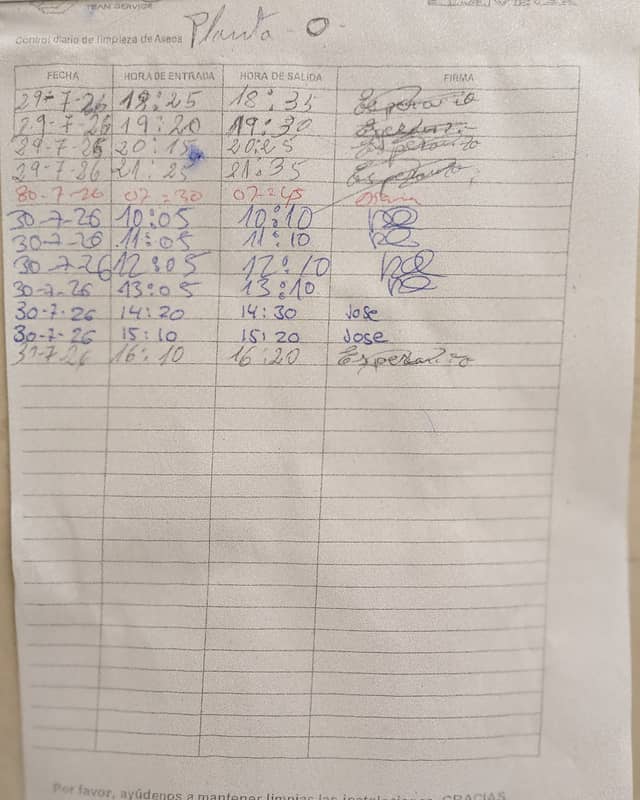 TEAN SERVICE
Control diario de limpieza de Aseos Planta - O -
FECHA HORA DE ENTRADA HORA DE SALIDA FIRMA
29-7-26 18:25 18:35 Esperanto
29-7-26 19:20 19:30
29-7-26 20:15 20:25 Esperanto
29-7-26 21:25 21:35 Esperanto
30-7-26 07:30 07:45
30-7-26 10:05 10:10
30-7-26 11:05 11:10
30-7-26 12:05 12:10
30-7-26 13:05 13:10
30-7-26 14:20 14:30 Jose
30-7-26 15:10 15:20 Jose
16:10 16:20
Por favor, ayúdenos a mantener limpias las instalaciones. GRACIAS